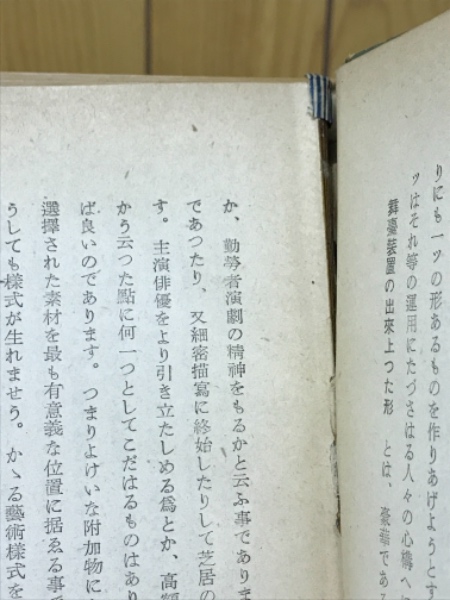 りにも一ツの形あるものを作りあげようとす
ツはそれ等の運用にたづさはる人々の心構へに
舞臺装置の出來上つた形　とは、豪華である
か、勤勞者演劇の精神をもるかと云ふ事でありま
であつたり、又細密描寫に終始したりして芝居の
す。主演俳優をより引き立たしめる爲とか、高
かう云つた點に何一つとしてこだはるものはあり
ば良いのであります。つまりよけいな附加物に
選擇された素材を最も有意義な位置に据ゑる事で
うしても樣式が生れませう。かゝる藝術樣式を